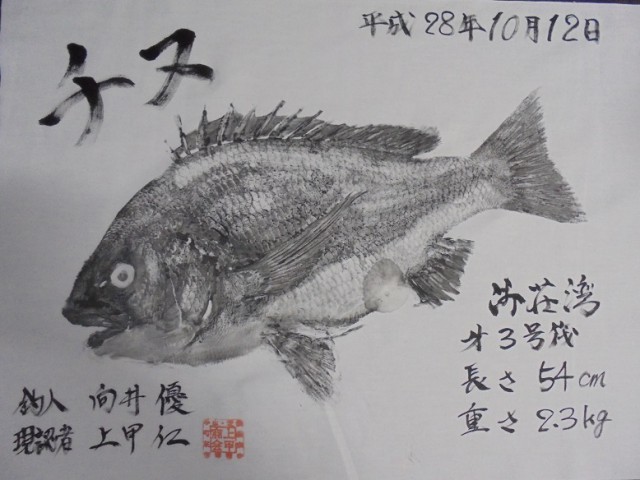 平成28年10月12日
チヌ
御荘湾
才3号筏
長さ 54cm
重さ 2.3kg
釣人 向井 優
現認者 上甲 仁